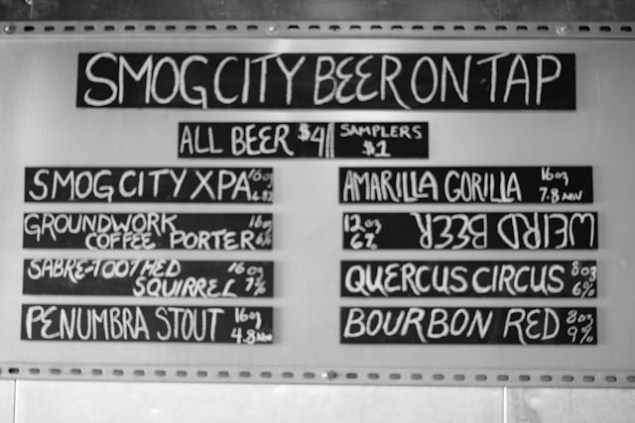 SMOG CITY BEER ON TAP
ALL BEER $4 SAMPLERS $1
SMOG CITY XPA 16oz
GROUNDWORK 16oz
COFFEE PORTER 6%
SABRE-TOOTHED 16oz
SQUIRREL 7%
PENUMBRA STOUT 16oz
4.8 ABV
AMARILLA GORILLA 16oz
7.8 ABV
WEIRD BEER 12oz
6%
QUERCUS CIRCUS 8oz
6%
BOURBON RED 8oz
9%